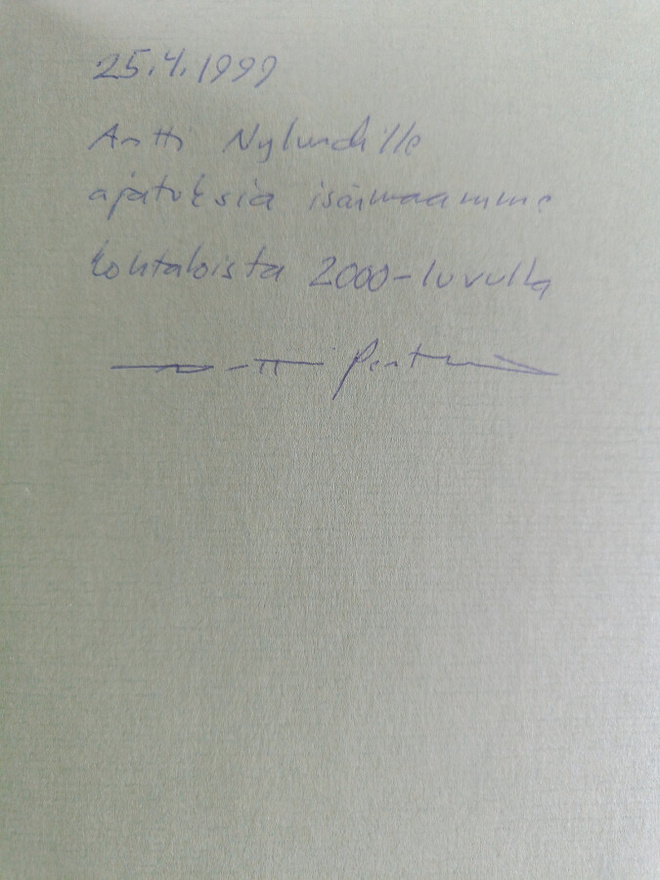 25.4.1999
Antti Nylundille
ajatuksia isänmaamme
kohtaloista 2000-luvulla